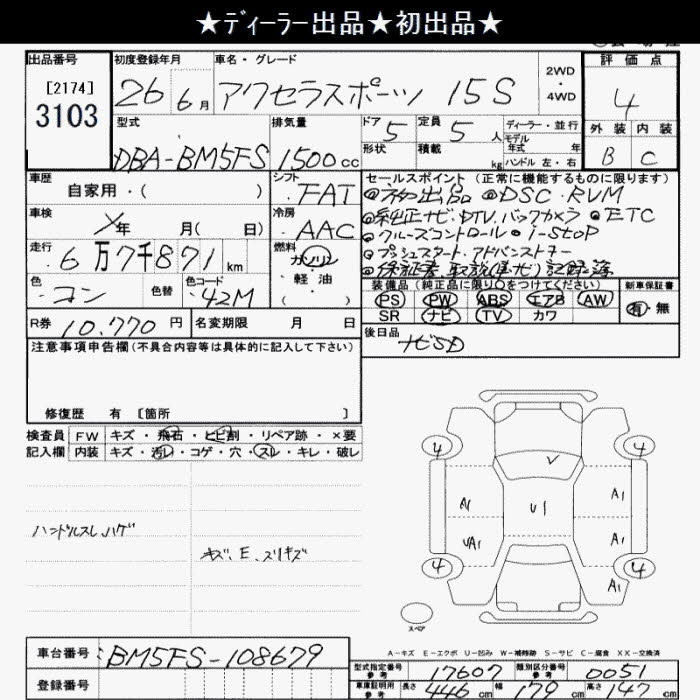 ★ディーラー出品★初出品★
出品番号
[2174]
3103
初度登録年月
26年 6月
車名・グレード
アクセラスポーツ 15S
2WD
・
4WD
評価点
4
外装 内装
B C
型式
DBA-BM5FS
排気量
1500cc
ドア
5
定員
5人
形状
積載
kg
ディーラー・並行
モデル年式 年
ハンドル 左・右
車歴
自家用・( )
シフト
FAT
車検
年 月( 日)
冷房
AAC
走行
6万7千871km
燃料
ガソリン
・軽油
( )
色
コン
色替
色コード
42M
R券
10,770円
名変期限 月 日
セールスポイント (正常に機能するものに限ります)
◎初出品 ◎DSC・RVM
◎純正ナビ、DTV、バックカメラ ◎ETC
◎クルーズコントロール ◎i-stop
◎プッシュスタート、アドバンストキー
◎保証書、取説(ナビ)記録簿
装備品(純正品に限り〇をつけてください)
PS PW ABS エアB AW
SR ナビ TV カワ
新車保証書
有・無
後日品
ナビSD
注意事項申告欄(不具合内容等は具体的に記入して下さい)
修復歴 有 [箇所 ]
検査員
記入欄
FW キズ・飛石・ヒビ割・リペア跡・×要
内装 キズ・汚レ・コゲ・穴・スレ・キレ・破レ
ハンドルスレ、ハゲ
キズ、E、スリキズ
4 4
A1 A1
U1
UA1 A1
4 4
A1
スペア
A-キズ E-エクボ U-凹み W-補修跡 S-サビ C-腐食 XX-交換済
車台番号
BM5FS-108679
登録番号
型式指定番号
参考
17607
類別区分番号
参考
0051
車庫証明用
参考
長さ 446cm 幅 179cm 高さ 147cm